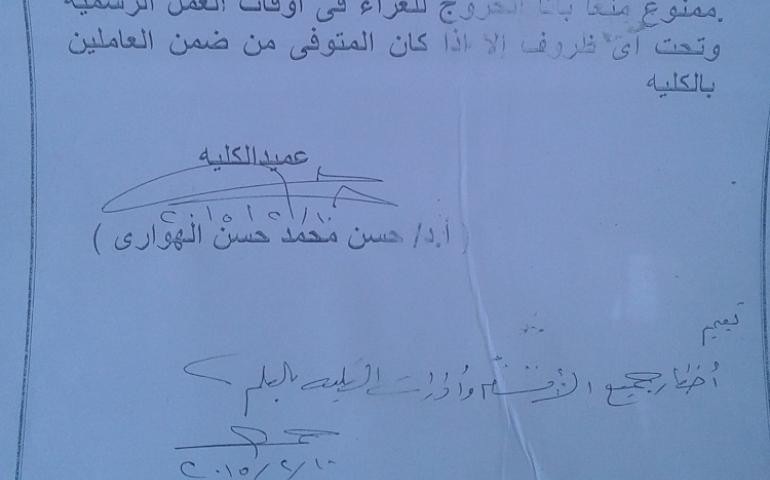 ممنوع منعا باتا الخروج للعزاء فى أوقات العمل الرسمية
وتحت أى ظروف إلا اذا كان المتوفى من ضمن العاملين
بالكليه
عميدالكليه
٢٠١٥/٢/١٠
( أ.د/ حسن محمد حسن الهوارى )
تعميم
أخطار جميع الأقسام وأدارات الكليه بالعلم
٢٠١٥/٢/١٠